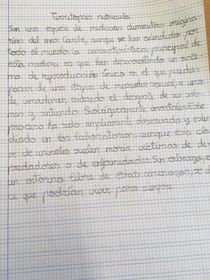 Turritopsis nutricula
Son una especie de medusas diminutas origina
rias del mar Caribe, aunque se han extendido por
todo el mundo. La característica principal de
esta medusa es que han desarrollado un siste
ma de reproducción único en el que pueden
pasar de una etapa de madurez sexual a una
de inmadurez, evitando el desgaste de su
y siendo biológicamente inmortales. Este
proceso ha sido ampliamente observado y estu
diado en los laboratorios, aunque esta cla
se de animales suelen morir víctimas de de
predadores o de enfermedades. Sin embargo, e
un entorno libre de estas amenazas, se di
ce que podrían vivir para siempre.